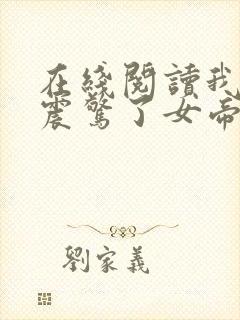 在綫閱讀我
震驚了女帝
劉家義